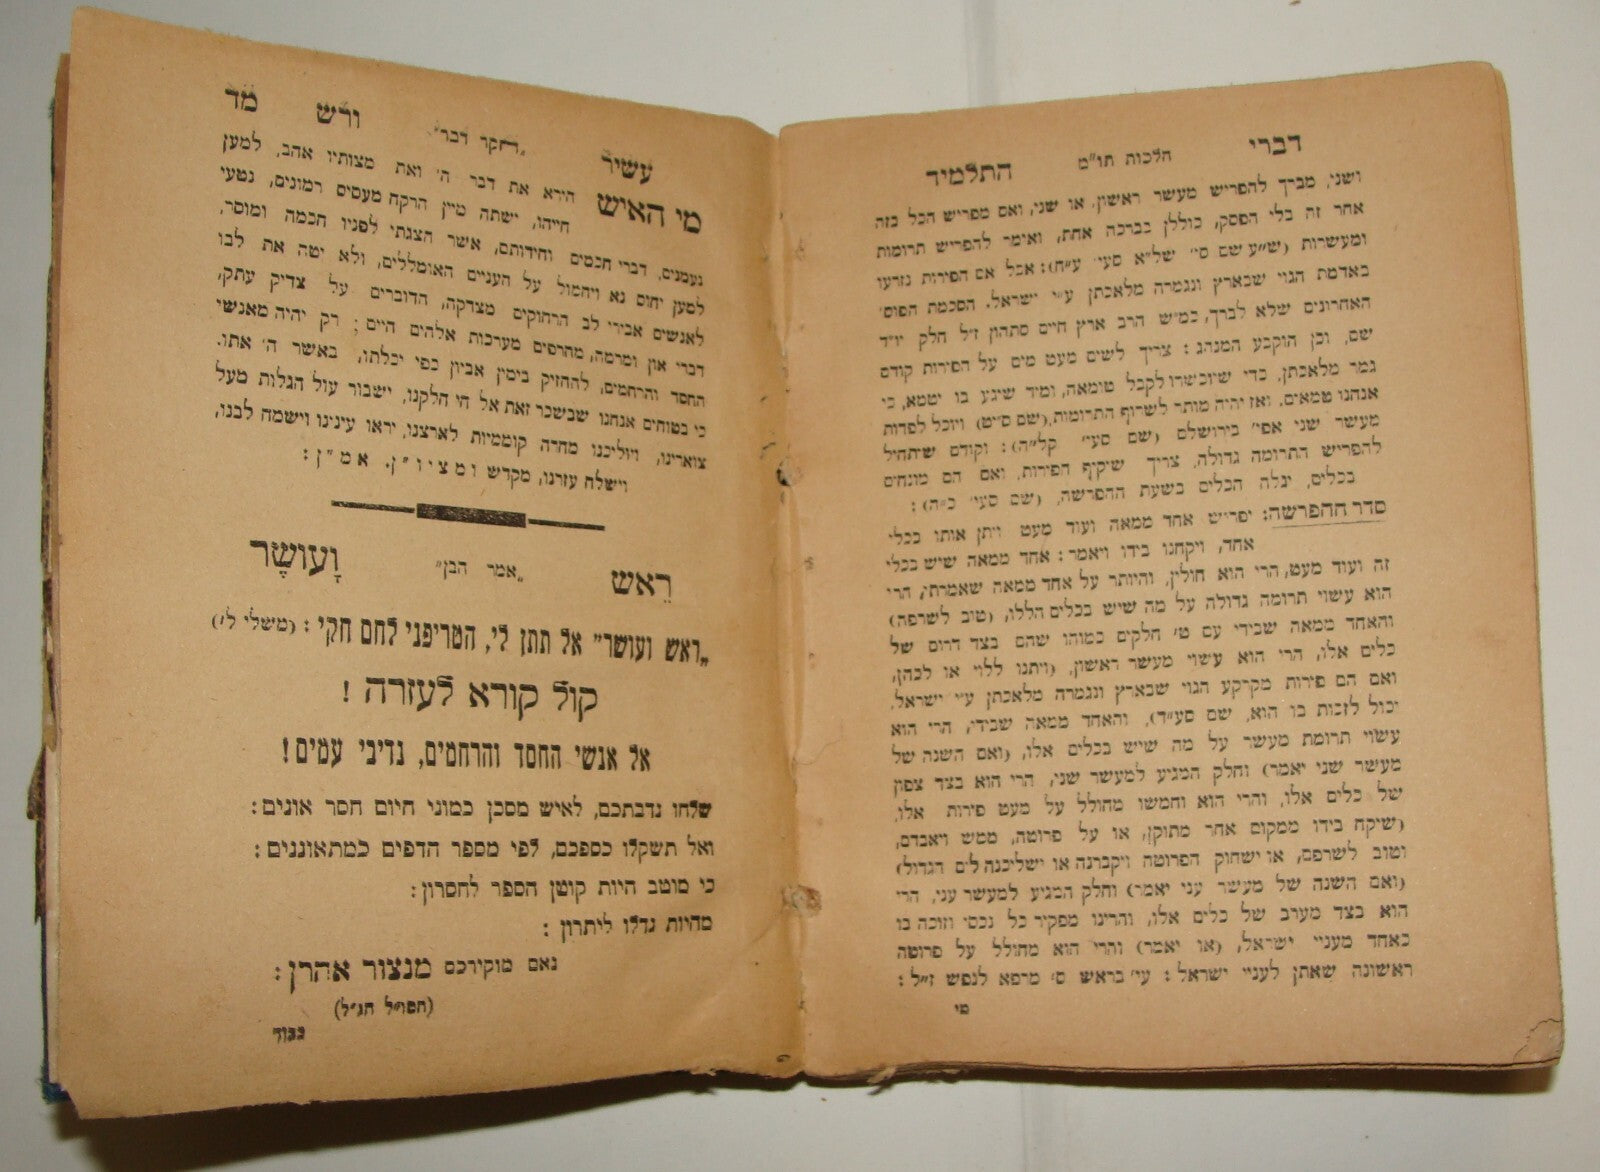 דברי הלכות תו"מ התלמיד
ושני, מברך להפריש מעשר ראשון, או שני, ואם מפריש הכל בזה
אחר זה בלי הפסק, כוללן בברכה אחת, ואומר להפריש תרומות
ומעשרות (ש"ע שם סי' של"א סעי' ע"ח): אבל אם הפירות נזרעו
באדמת הגוי שבארץ ונגמרה מלאכתן ע"י ישראל. הסכמת הפוס'
האחרונים שלא לברך, כמ"ש הרב ארץ חיים סתהון ז"ל חלק יו"ד
שם, וכן הוקבע המנהג: צריך לשים מעט מים על הפירות קודם
גמר מלאכתן, כדי שיוכשרו לקבל טומאה, ומיד שיגיע בו יטמא, כי
אנחנו טמאים. ואז יהיה מותר לשרוף התרומות, (שם ס"יט) ויוכל לפדות
מעשר שני אפי' בירושלם (שם סעי' קל"ה): וקודם שיתחיל
להפריש התרומה גדולה, צריך שיקיף הפירות, ואם הם מונחים
בכלים, יגלה הכלים בשעת ההפרשה, (שם סעי' כ"ה):
סדר ההפרשה: יפריש אחד ממאה ועוד מעט ויתן אותו בכלי
אחד, ויקחנו בידו ויאמר: אחד ממאה שיש בכלי
זה ועוד מעט, הרי הוא חולין, והיותר על אחד ממאה שאמרתי, הרי
הוא עשוי תרומה גדולה על מה שיש בכלים הללו, (טוב לשרפה)
והאחד ממאה שבידי עם ט' חלקים כמוהו שהם בצד דרום של
כלים אלו, הרי הוא עשוי מעשר ראשון, (ויתנו ללוי או לכהן,
ואם הם פירות מקרקע הגוי שבארץ ונגמרה מלאכתן ע"י ישראל,
יכול לזכות בו הוא, שם סע"ד), והאחד ממאה שבידי, הרי הוא
עשוי תרומת מעשר על מה שיש בכלים אלו, (ואם השנה של
מעשר שני יאמר) וחלק המגיע למעשר שני, הרי הוא בצד צפון
של כלים אלו, והרי הוא וחמשו מחולל על מעט פירות אלו,
(שיקח בידו ממקום אחר מתוקן, או על פרוטה, ממש ויאבדם,
וטוב לשרפם, או ישחוק הפרוטה ויקברנה או ישליכנה לים הגדול)
(ואם השנה של מעשר עני יאמר) וחלק המגיע למעשר עני, הרי
הוא בצד מערב של כלים אלו, והרינו מפקיר כל נכסי וזוכה בו
כאחד מעניי ישראל, (או יאמר) והרי הוא מחולל על פרוטה
ראשונה שאתן לעניי ישראל: עי' בראש ס' מרפא לנפש ז"ל:
מי
עשיר "דחקר דבר" ורש מד
מי האיש הירא את דבר ה' ואת מצותיו אהב, למען
חייהו, ישתה מיין הרקח מעסים רמונים, נטעי
נעמנים, דברי חכמים וחידותם, אשר הצגתי לפניו חכמה ומוסר,
למען יחוס נא ויחמול על העניים האומללים, ולא יטה את לבו
לאנשים אבירי לב הרחוקים מצדקה, הדוברים על צדיק עתק,
דברי און ומרמה, מהרסים מערכות אלהים חיים; רק יהיה מאנשי
החסד והרחמים, להחזיק בימין אביון כפי יכלתו, באשר ה' אתו.
כי בטוחים אנחנו שבשכר זאת אל חי חלקנו, ישבור עול הגלות מעל
צוארינו, ויוליכנו מהרה קוממיות לארצנו, יראו עינינו וישמח לבנו,
וישלח עזרנו, מקדש ומציו"ן. אמ"ן:
רֵאש "אמר הבן" וָעוֹשֶר
"ראש ועושר" אל תתן לי, הטריפני לחם חקי: (משלי ל')
קול קורא לעזרה!
אל אנשי החסד והרחמים, נדיבי עמים!
שלחו נדבתכם, לאיש מסכן כמוני חיום חסר אונים:
ואל תשקלו כספכם, לפי מספר הדפים כמתאוננים:
כי מוטב היות קוטן הספר לחסרון:
מהיות גדלו ליתרון:
נאם מוקירכם מנצור אהרן:
(חפו"ל תג"ל)
כבוד